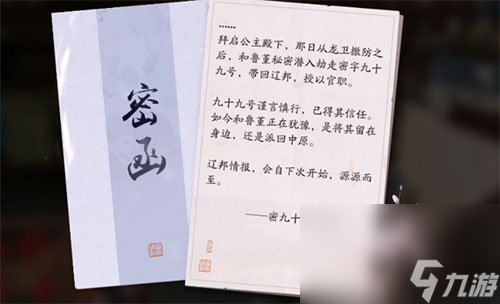 密函
……
拜启公主殿下，那日从龙卫撤防之
后，和鲁董秘密潜入劫走密字九十
九号，带回辽邦，授以官职。
九十九号谨言慎行，已得其信任。
如今和鲁董正在犹豫，是将其留在
身边，还是派回中原。
辽邦情报，会自下次开始，源源而
至。
——密九十
九游